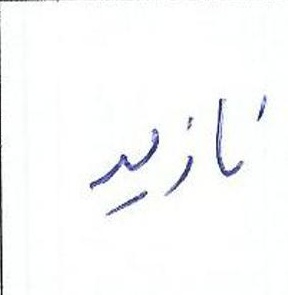 نازید